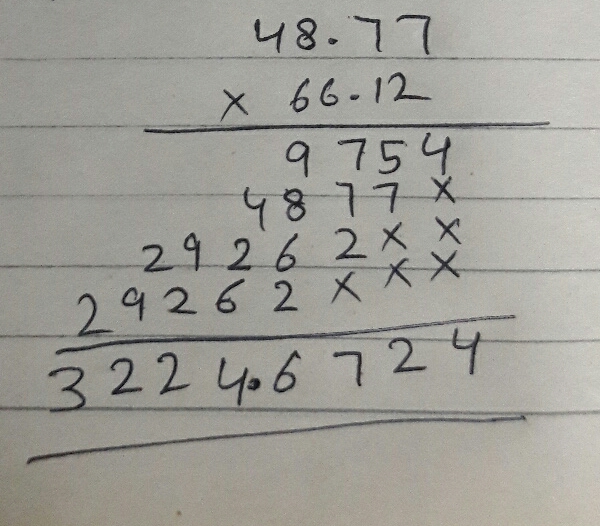 48.77
× 66.12
9754
4877×
29262××
29262×××
3224.6724